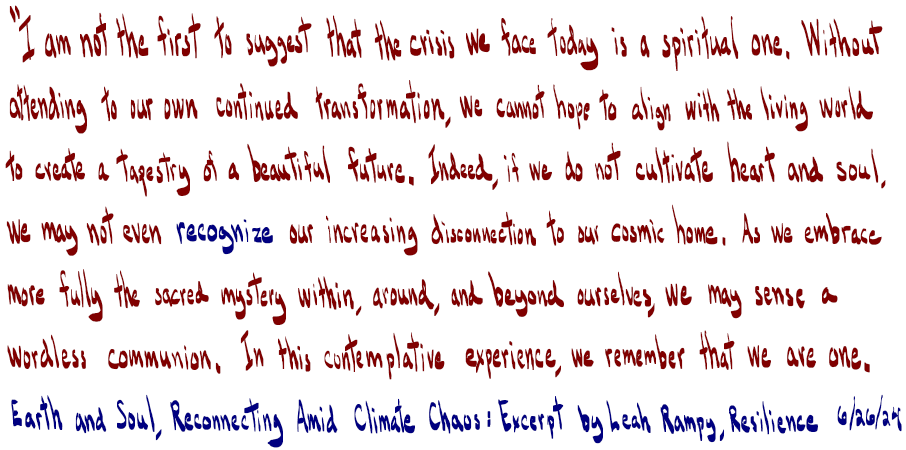 "I am not the first to suggest that the crisis we face today is a spiritual one. Without
attending to our own continued transformation, we cannot hope to align with the living world
to create a tapestry of a beautiful future. Indeed, if we do not cultivate heart and soul,
we may not even recognize our increasing disconnection to our cosmic home. As we embrace
more fully the sacred mystery within, around, and beyond ourselves, we may sense a
wordless communion. In this contemplative experience, we remember that we are one.
Earth and Soul, Reconnecting Amid Climate Chaos: Excerpt by Leah Rampy, Resilience 6/26/24